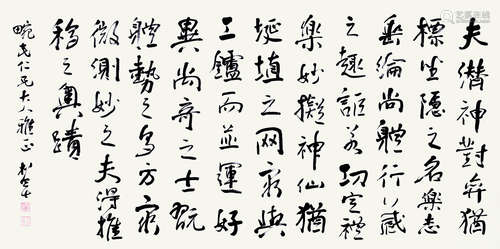 夫潛神對弈
標坐隱之名樂志
垂綸尚體行藏
之趣詎若功定禮
樂妙擬神仙猶
埏埴之罔窮與
工鑪而並運好
異尚奇之士翫
體勢之多方窮
微測妙之夫得推
移之奧蹟
仁兄大人雅正